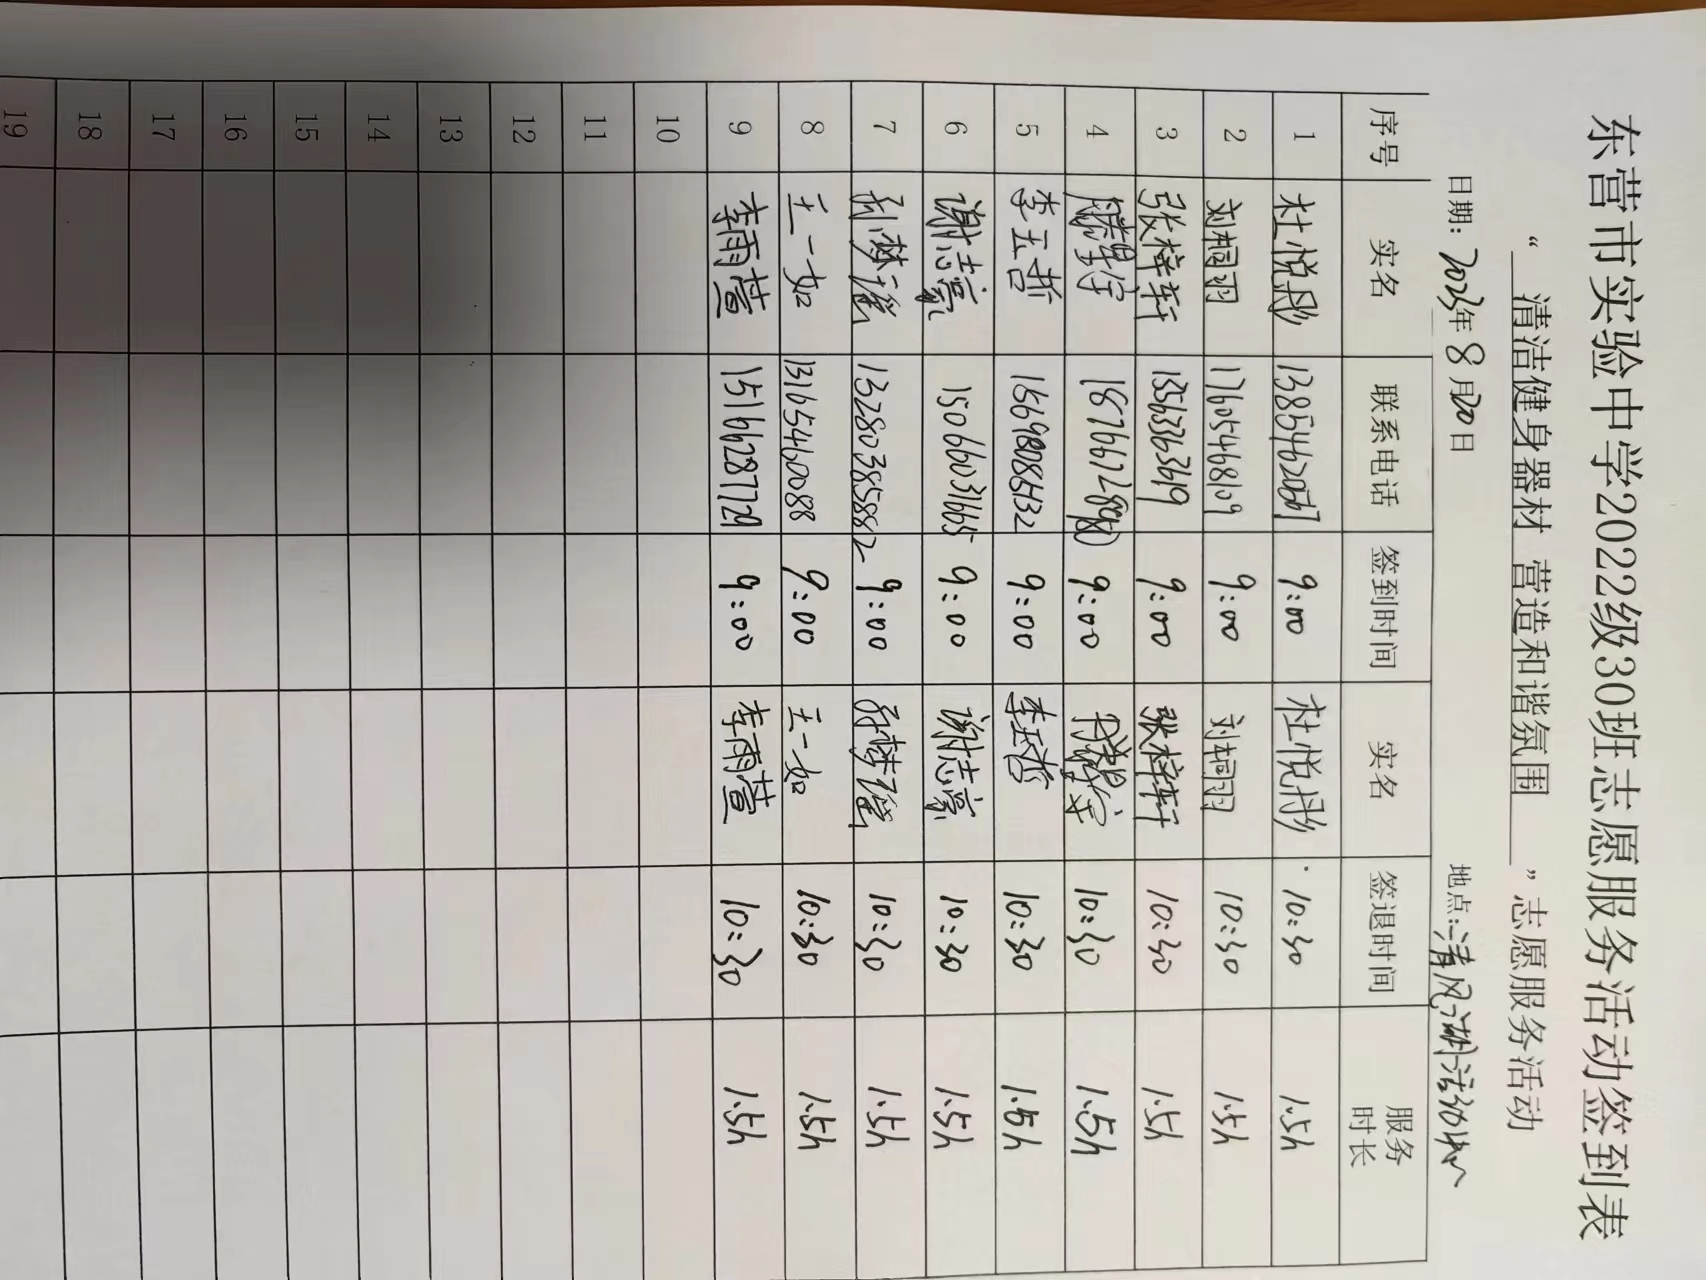 东营市实验中学2022级30班志愿服务活动签到表
“ 清洁健身器材 营造和谐氛围 ”志愿服务活动
日期：2023年8月20日 地点：清风湖活动
序号 实名 联系电话 签到时间 实名 签退时间 服务时长
1 杜悦彤 9:00 杜悦彤 10:30 1.5h
2 刘桐羽 17605468109 9:00 刘桐羽 10:30 1.5h
3 张梓轩 9:00 张梓轩 10:30 1.5h
4 9:00 10:30 1.5h
5 李五哲 9:00 10:30 1.5h
6 谢志豪 15066031665 9:00 谢志豪 10:30 1.5h
7 13280385882 9:00 10:30 1.5h
8 王一如 13165460088 9:00 王一如 10:30 1.5h
9 李雨萱 15166287729 9:00 李雨萱 10:30 1.5h
10
11
12
13
14
15
16
17
18
19